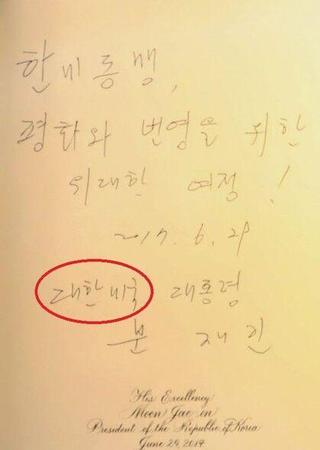 한미동맹,
평화와 번영을 위한
위대한 여정!
2017. 6. 29
대한미국 대통령
문 재 인
His Excellency
Moon Jae-in
President of the Republic of Korea
June 29, 2017